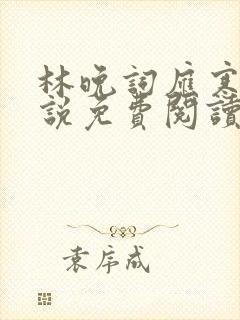 林晚詞雁寒
說免費閱讀
袁序成